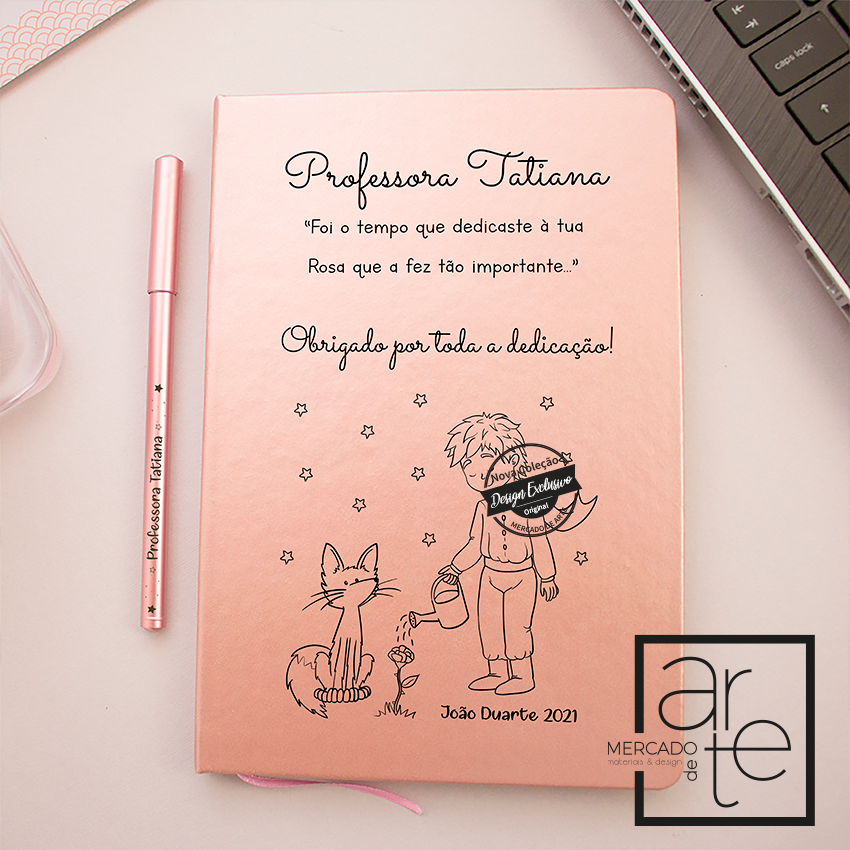 Professora Tatiana
“Foi o tempo que dedicaste à tua
Rosa que a fez tão importante...”
Obrigado por toda a dedicação!
Nova Coleção
Design Exclusivo
Original
MERCADO DE ARTE
João Duarte 2021
Professora Tatiana
caps lock
arte
MERCADO
de
materiais & design